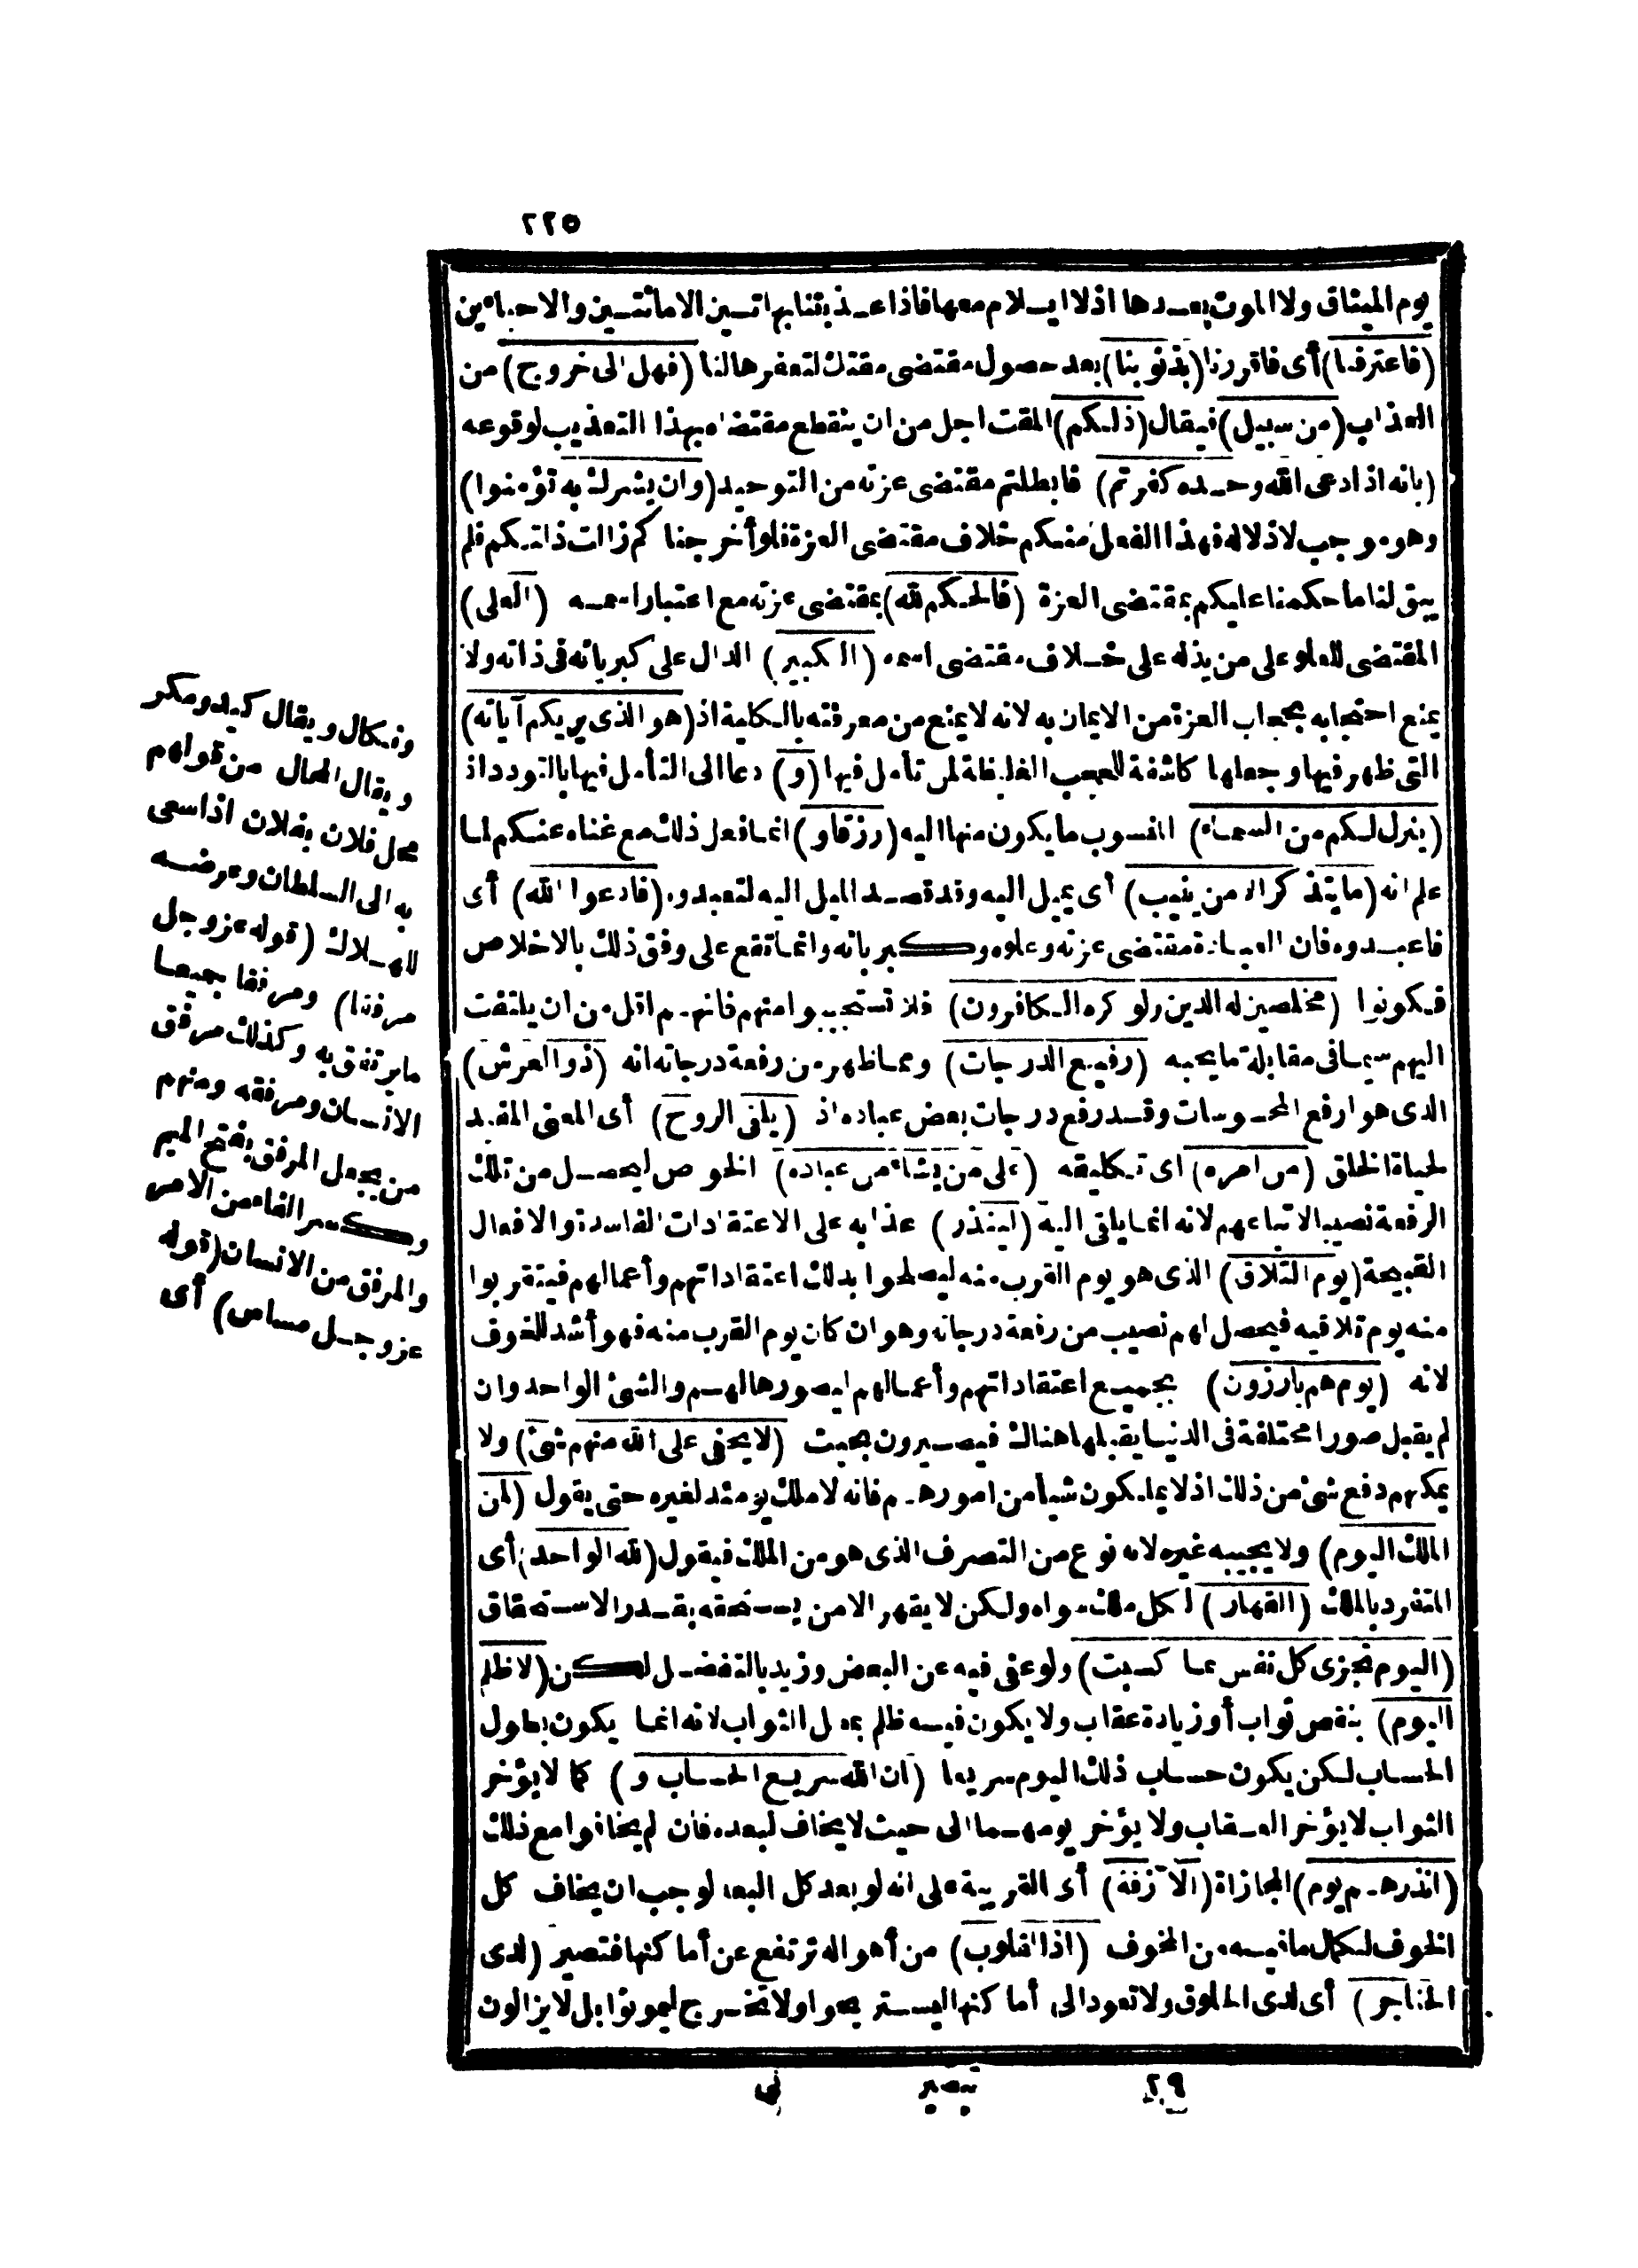 ٢٢٥
يوم الميثاق ولا الموت بعدها اذلا ايلام معها فاذا عذبتنا بها تين الاماتتين والاحياءين
(فاعترفنا) أى فاقررنا (بذنوبنا) بعد حصول مقتضى مقتك لتغفرها لنا (فهل الى خروج) من
العذاب (من سبيل) فيقال (ذلكم) المقت اجل من ان ينقطع مقتضاه بهذا التعذيب لوقوعه
(بانه اذا دعى الله وحده كفرتم) فابطلتم مقتضى عزته من التوحيد (وان يشرك به تؤمنوا)
وهو موجب لاذلاله فهذا الفعل منكم خلاف مقتضى العزة فلو أخرجناكم زالت ذلتكم فلم
يبق لنا ما حكمنا عليكم بمقتضى العزة (فالحكم لله) بمقتضى عزته مع اعتبار اسمه (العلى)
المقتضى للعلو على من يذله على خلاف مقتضى اسمه (الكبير) الدال على كبريائه فى ذاته ولا
يمنع احتجابه بحجاب العزة من الايمان به لانه لا يمنع من معرفته بالكلية اذ (هو الذى يريكم آياته)
التى ظهر فيها وجعلها كاشفة للحجب الغليظة لمن تأمل فيها (و) دعا الى التأمل فيها بالتودد اذ
(ينزل لكم من السماء) المنسوب ما يكون منها اليه (رزقا و) انما فعل ذلك مع غناه عنكم لما
علم انه (ما يتذكر الا من ينيب) أى يميل اليه وقد قصد الميل اليه لتعبدوه (فادعوا الله) أى
فاعبدوه فان العبادة مقتضى عزته وعلوه وكبريائه وانما تقع على وفق ذلك بالاخلاص
فيكونوا (مخلصين له الدين ولو كره الكافرون) فلا تستحيوا منهم فانهم اقل من ان يلتفت
اليهم سيما فى مقابلة ما يحبه (رفيع الدرجات) ومما ظهر من رفعة درجاته انه (ذو العرش)
الذى هو ارفع المحسوسات وقد رفع درجات بعض عباده اذ (يلقى الروح) أى المعنى المفيد
لحياة الخلق (من امره) اى تكليفه (على من يشاء من عباده) الخواص ليحصل من تلك
الرفعة نصيب الاتباعهم لانه انما يلقى اليه (لينذر) عذابه على الاعتقادات الفاسدة والافعال
القبيحة (يوم التلاق) الذى هو يوم القرب منه ليصلحوا بذلك اعتقاداتهم وأعمالهم فيتقربوا
منه يوم تلاقيه فيحصل لهم نصيب من رفعة درجاته وهو ان كان يوم القرب منه فهو أشد للخوف
لانه (يوم هم بارزون) بجميع اعتقاداتهم وأعمالهم ليصورها لهم والشئ الواحد وان
لم يقبل صورا مختلفة فى الدنيا يقبلها هناك فيصيرون بحيث (لا يخفى على الله منهم شئ) ولا
يمكنهم دفع شئ من ذلك اذ لا يملكون شيأ من امورهم فانه لا ملك يومئذ لغيره حتى يقول (لمن
الملك اليوم) ولا يجيبه غيره لانه نوع من التصرف الذى هو من الملك فيقول (لله الواحد) أى
المتفرد بالملك (القهار) لكل ملك سواه ولكن لا يقهر الا من يستحقه بقدر الاستحقاق
(اليوم تجزى كل نفس بما كسبت) ولو عفى فيه عن البعض وزيد بالتفضل لكن (لا ظلم
اليوم) بنقص ثواب أو زيادة عقاب ولا يكون فيه ظلم بمطل الثواب لانه انما يكون بطول
الحساب لكن يكون حساب ذلك اليوم سريعا (ان الله سريع الحساب و) كما لا يؤخر
الثواب لا يؤخر العقاب ولا يؤخر يومهما الى حيث لا يخاف لبعده فان لم يخافوا مع ذلك
(انذرهم يوم) المجازاة (الآزفة) أى القريبة على انه لو بعد كل البعد لوجب ان يخاف كل
الخوف لكمال ما فيه من المخوف (اذ القلوب) من أهواله ترتفع عن أماكنها فتصير (لدى
الحناجر) أى لدى الحلوق ولا تعود الى أماكنها ليستريحوا ولا تخرج ليموتوا بل لا يزالون
٢٩ تبصير نى
ونكال ويقال كيد ومكر
ويقال المحال من قولهم
محل فلان بفلان اذا سعى
به الى السلطان وعرضه
للهلاك (قوله عز وجل
مرفقا) ومرفقا جميعا
ما يرتفق به وكذلك مرفق
الانسان ومرفقه ومنهم
من يجعل المرفق بفتح الميم
وكسر الفاء من الامر
والمرفق من الانسان (قوله
عز وجل مساس) أى